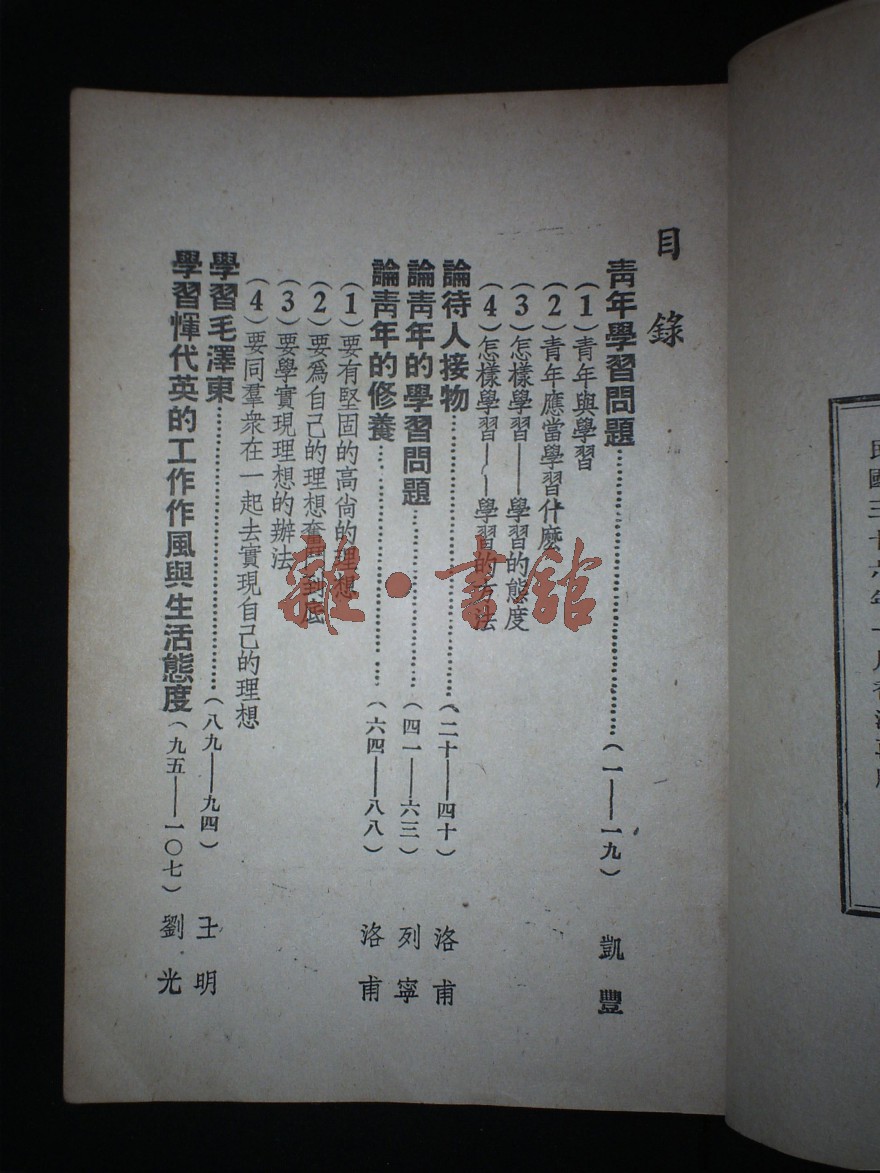 目錄
青年學習問題……(一——一九) 凱豐
(1)青年與學習
(2)青年應當學習什麼
(3)怎樣學習——學習的態度
(4)怎樣學習——學習的方法
論待人接物……(二十——四十) 洛甫
論青年的學習問題……(四一——六三) 列寧
論青年的修養……(六四——八八) 洛甫
(1)要有堅固的高尙的理想
(2)要爲自己的理想奮鬥到底
(3)要學實現理想的辦法
(4)要同羣衆在一起去實現自己的理想
學習毛澤東……(八九——九四) 王明
學習惲代英的工作作風與生活態度(九五——一〇七) 劉光
雜·書館